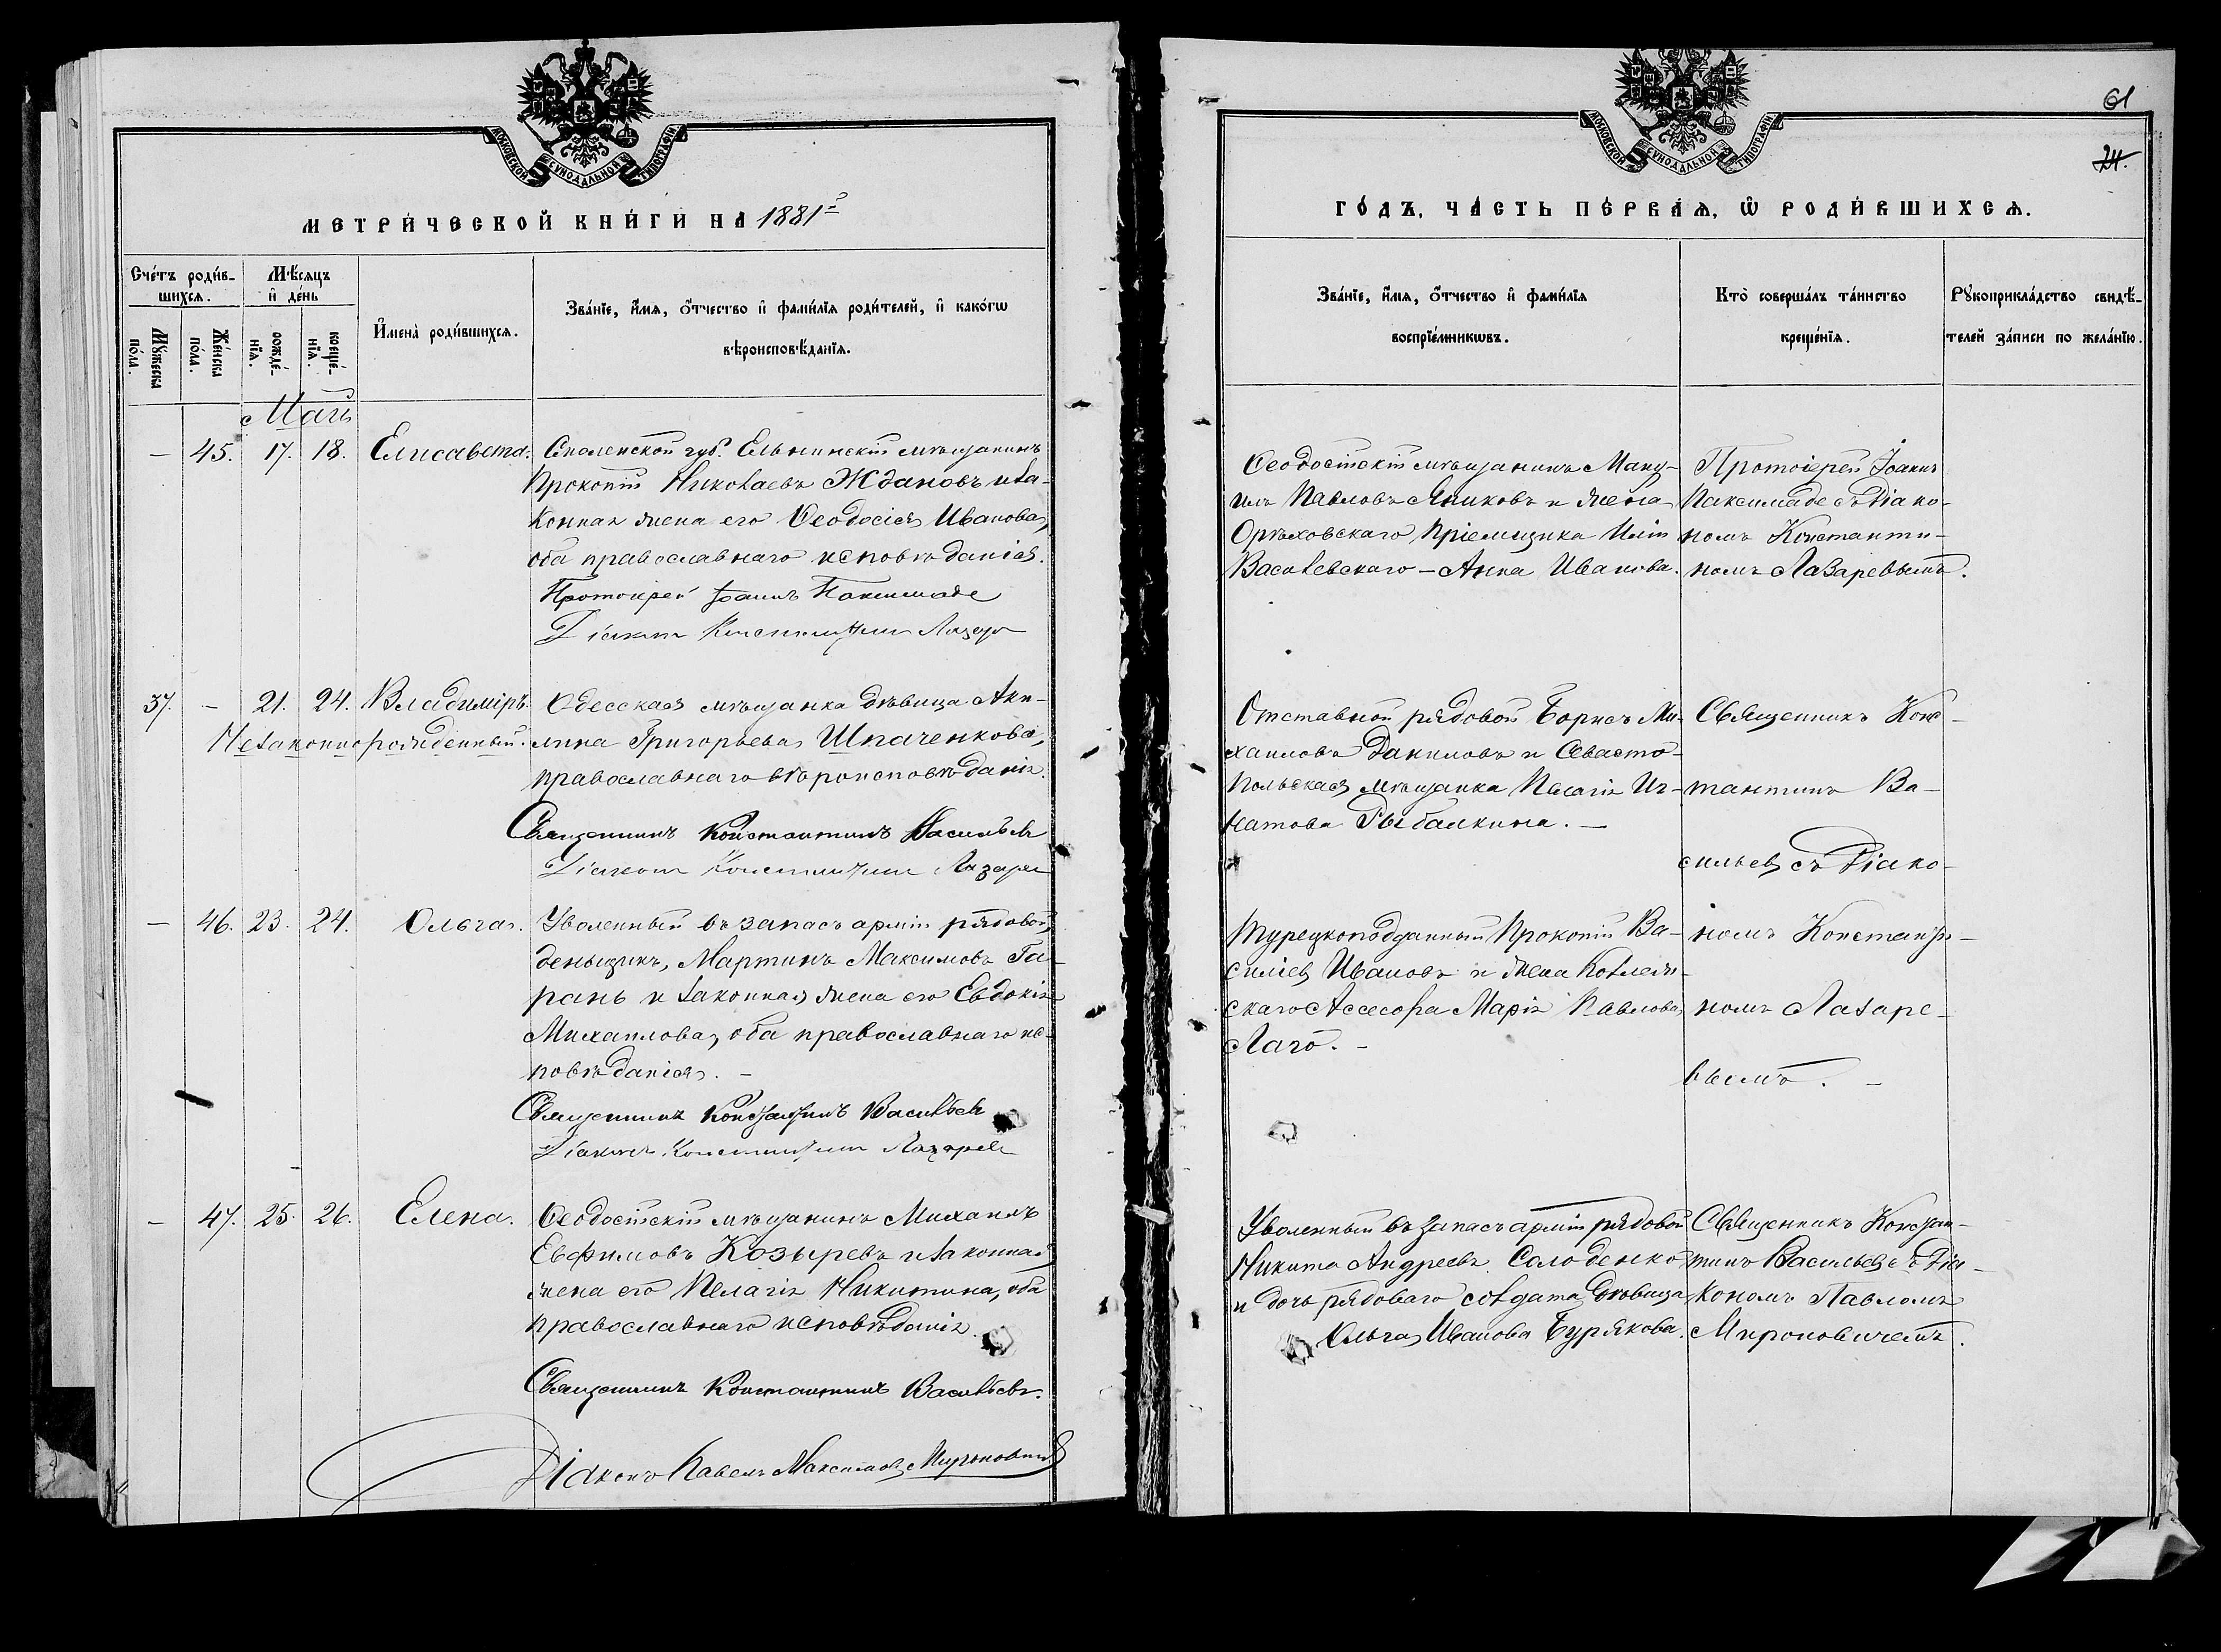 МОСКОВСКОЙ СУНОДАЛЬНОЙ ТИПОГРАФІИ
МЕТРИ́ЧЕСКОЙ КНИ́ГИ НА 1881й
Сче́тъ роди́в-
шихсѧ.
Мѣ́сѧцъ
и҆ де́нь
Мꙋ́жеска
по́ла.
Же́нска
по́ла.
рожде́-
нїѧ.
креще́-
нїѧ.
И҆мена̀ роди́вшихсѧ.
Зва́нїе, и҆́мѧ, ѻ҆́тчество и҆ фами́лїѧ роди́телей, и҆ како́гѡ
вѣроисповѣ́данїѧ.
Май
— 45. 17. 18. Елисавета. Смоленской губ. Ельнинскій мѣщанинъ
Прокопій Николаевъ Ждановъ и за-
конная жена его Ѳеодосія Иванова,
оба православнаго исповѣданія.
Протоіерей Іоаннъ Паксимаде
Діаконъ Константинъ Лазаре
37. — 21. 24. Владиміръ. Одесская мѣщанка дѣвица Аки-
Незаконнорожденный. лина Григорьева Шпаченкова,
православнаго вѣроисповѣданія.
Священникъ Константинъ Васильевъ
Діаконъ Константинъ Лазаре
— 46. 23. 24. Ольга. Уволенный въ запасъ арміи рядовой,
деньщикъ, Мартинъ Максимовъ Га-
рань и законная жена его Евдокія
Михаилова, оба православнаго ис-
повѣданія. —
Священникъ Константинъ Васильевъ
Діаконъ Константинъ Лазаревъ
— 47. 25. 26. Елена. Ѳеодосійскій мѣщанинъ Михаилъ
Евфимовъ Козыревъ и законная
жена его Пелагія Никитина, оба
православнаго исповѣданія.
Священникъ Константинъ Васильевъ.
Діаконъ Павелъ Максимовъ Мироновичъ
61
24.
МОСКОВСКОЙ СУНОДАЛЬНОЙ ТИПОГРАФІИ
ГО́ДЪ, ЧА́СТЬ ПЕ́РВАѦ, Ѡ҆ РОДИ́ВШИХСѦ.
Зва́нїе, и҆́мѧ, ѻ҆́тчество и҆ фами́лїѧ
воспрїе́мникѡвъ.
Кто̀ соверша́лъ та́инство
креще́нїѧ.
Рꙋкоприкла́дство свидѣ́-
телей за́писи по жела́нїю.
Ѳеодосійскій мѣщанинъМану-
илъ Павловъ и жена
Орѣховскаго Пріемщика Иліи
Василевскаго — Анна Иванова.
Протоіерей Іоаннъ
Паксимаде съ Діако-
номъ Константи-
номъ Лазаревымъ.
Отставной рядовой Борисъ Ми-
хаиловъ Даниловъ и Севасто-
польская мѣщанка Пелагія Иг-
натова Рыбалкина. —
Священникъ Конс-
тантинъ Ва-
сильевъ съ Діако-
номъ Константи-
номъ Лазаре-
вымъ. —
Турецкоподданный Прокопій Ва-
силіевъ Ивановъ и жена Коллеж-
скаго Ассесора Марія Павлова
Лаго. —
Уволенный въ запасъ арміи рядовой
Никита Андреевъ Солоденко
и дочь рядоваго солдата дѣвица
Ольга Иванова Бурякова.
Священникъ Констан-
тинъ Васильевъ съ Діа-
кономъ Павломъ
Мироновичемъ.